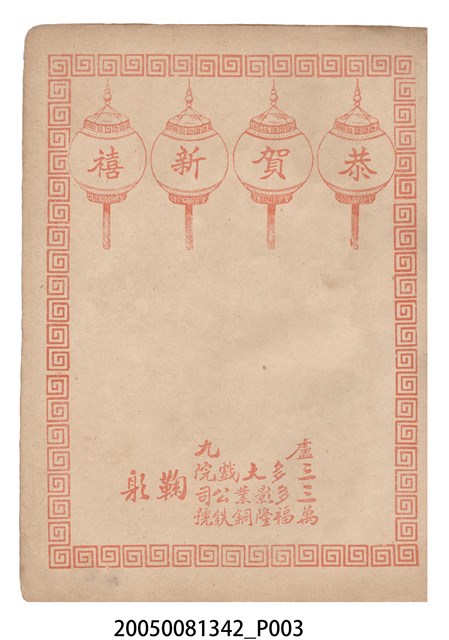 恭賀新禧
盧九
三多大戲院
三多影業公司
萬福隆銅鉄號
鞠躬
20050081342_P003